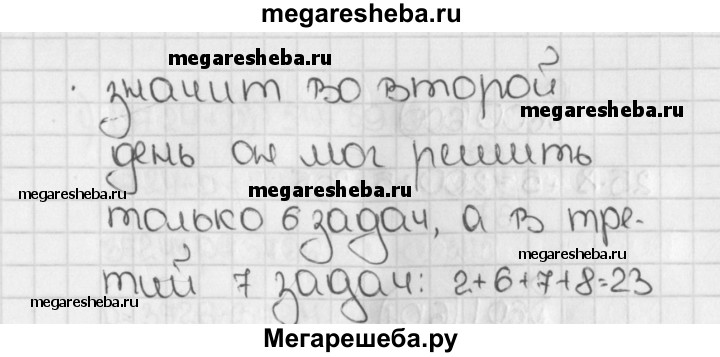 megaresheba.ru
megaresheba.ru
значит во второй
megaresheba.ru
день он мог решить
megaresheba.ru
megaresheba.ru
только 6 задач, а в тре-
megaresheba.ru
тий 7 задач: 2+6+7+8=23
megaresheba.ru
Мегарешеба.ру